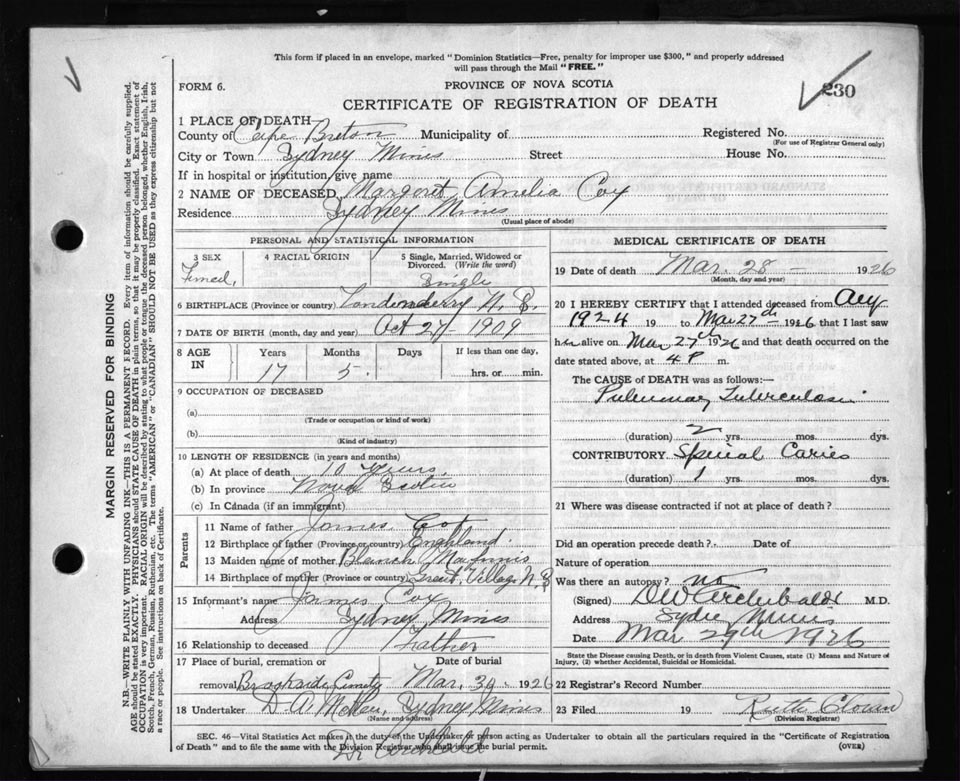 This form if placed in an envelope, marked "Dominion Statistics—Free, penalty for improper use $300," and properly addressed
will pass through the Mail "FREE."
FORM 6.
PROVINCE OF NOVA SCOTIA
230
CERTIFICATE OF REGISTRATION OF DEATH
1 PLACE OF DEATH
County of Cape Breton Municipality of Registered No.
(For use of Registrar General only)
City or Town Sydney Mines Street House No.
If in hospital or institution, give name
2 NAME OF DECEASED Margaret Amelia Cox
Residence Sydney Mines
(Usual place of abode)
PERSONAL AND STATISTICAL INFORMATION
3 SEX 4 RACIAL ORIGIN 5 Single, Married, Widowed or
Divorced. (Write the word)
Single
6 BIRTHPLACE (Province or country) Londonderry N.S.
7 DATE OF BIRTH (month, day and year) Oct 27 - 1909
8 AGE IN Years Months Days If less than one day,
17 5 hrs. or min.
9 OCCUPATION OF DECEASED
(a)
(Trade or occupation or kind of work)
(b)
(Kind of industry)
10 LENGTH OF RESIDENCE (in years and months)
(a) At place of death 10 years
(b) In province Nova Scotia
(c) In Canada (if an immigrant)
Parents
11 Name of father James Cox
12 Birthplace of father (Province or country) England.
13 Maiden name of mother Blanch
14 Birthplace of mother (Province or country) Great Village N.S
15 Informant's name James Cox
Address Sydney Mines
16 Relationship to deceased Father
17 Place of burial, cremation or Date of burial
removal Brookside Mar. 30 - 1926
18 Undertaker D. A. Sydney Mines
(Name and address)
MEDICAL CERTIFICATE OF DEATH
19 Date of death Mar. 28 - 1926
(Month, day and year)
20 I HEREBY CERTIFY that I attended deceased from Aug
1924 19 to Mar 27th 1926 that I last saw
her alive on Mar 27th 1926 and that death occurred on the
date stated above, at 4 P m.
The CAUSE of DEATH was as follows:—
Pulmonary Tuberculosis
(duration) 2 yrs. mos. dys.
CONTRIBUTORY Spinal Caries
(duration) 1 yrs. mos. dys.
21 Where was disease contracted if not at place of death?
Did an operation precede death? Date of
Nature of operation
Was there an autopsy? no
(Signed) DW Archibald M.D.
Address Sydney Mines
Date Mar 29th 1926
State the Disease causing Death, or in death from Violent Causes, state (1) Means and Nature of
Injury, (2) whether Accidental, Suicidal or Homicidal.
22 Registrar's Record Number
23 Filed 19 Ruth
(Division Registrar)
SEC. 46—Vital Statistics Act makes it the duty of the Undertaker or person acting as Undertaker to obtain all the particulars required in the "Certificate of Registration
of Death" and to file the same with the Division Registrar who shall issue the burial permit. (OVER)
Dr Archibald
MARGIN RESERVED FOR BINDING
N.B.—WRITE PLAINLY WITH UNFADING INK—THIS IS A PERMANENT RECORD. Every item of information should be carefully supplied.
AGE should be stated EXACTLY. PHYSICIANS should STATE CAUSE OF DEATH in plain terms, so that it may be properly classified. Exact statement of
OCCUPATION is very important. RACIAL ORIGIN will be described by stating to what people or tongue the deceased person belonged, whether English, Irish,
Scotch, French, German, Russian, Ruthenian, etc. The terms "AMERICAN" or "CANADIAN" SHOULD NOT BE USED as they express citizenship but not
a race or people. See instructions on back of Certificate.